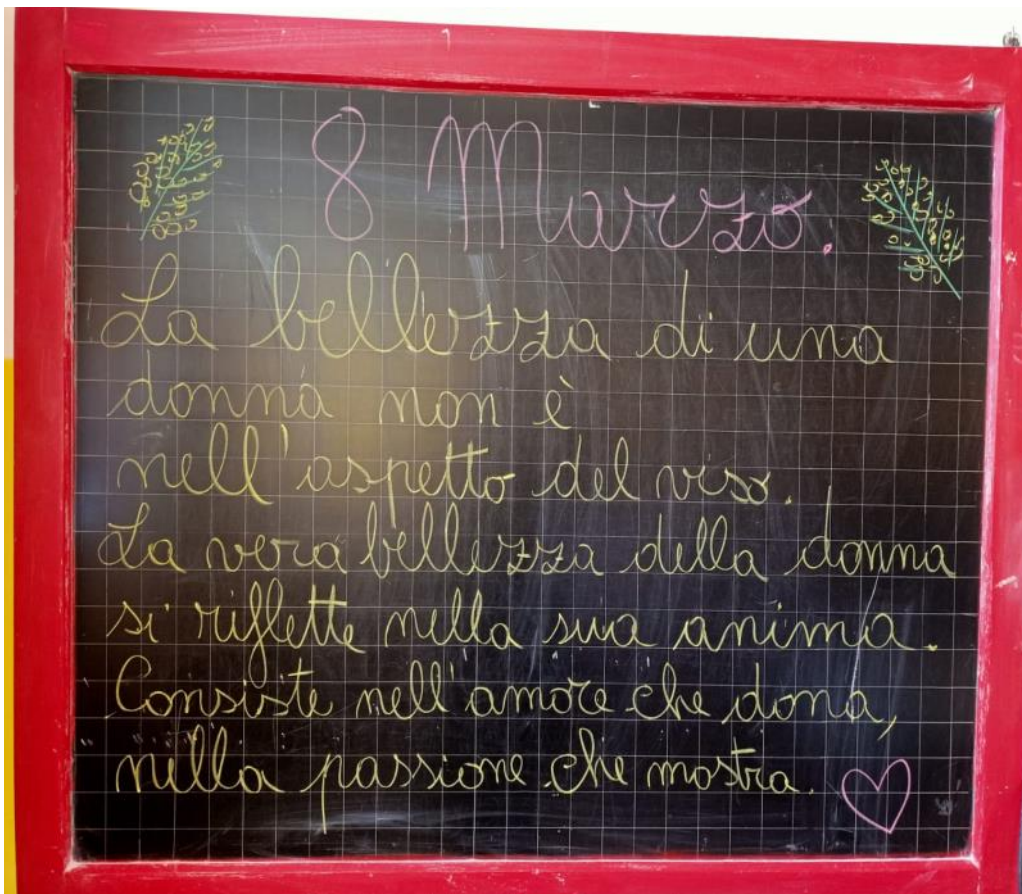 8 Marzo.
La bellezza di una
donna non è
nell'aspetto del viso.
La vera bellezza della donna
si riflette nella sua anima.
Consiste nell'amore che dona,
nella passione che mostra.